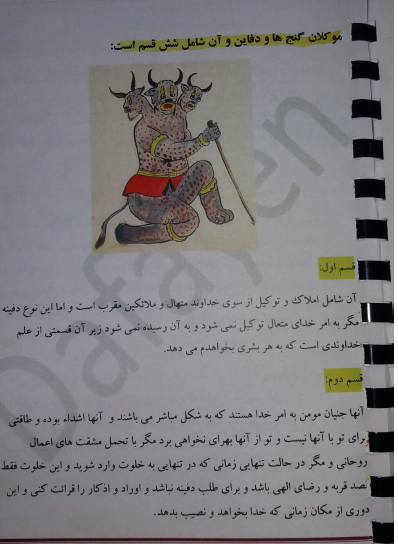 موکلان گنج ها و دفاین و آن شامل شش قسم است:
قسم اول:
آن شامل املاک و توکیل از سوی خداوند متهال و ملائکین مقرب است و اما این نوع دفینه
مگر به امر خدای متعال توکیل نمی شود و به آن رسیده نمی شود زیر آن قسمتی از علم
خداوندی است که به هر بشری بخواهدم می دهد.
قسم دوم:
آنها جنیان مومن به امر خدا هستند که به شکل مباشر می باشند و آنها اشداء بوده و طاقتی
برای تو با آنها نیست و تو از آنها بهرای نخواهی برد مگر با تحمل مشقت های اعمال
روحانی و مگر در حالت تنهایی زمانی که در تنهایی به خلوت وارد شوید و این خلوت فقط
قصد قربه و رضای الهی باشد و برای طلب دفینه نباشد و اوراد و اذکار را قرائت کنی و این
دوری از مکان زمانی که خدا بخواهد و نصیب بدهد.
Dafayen